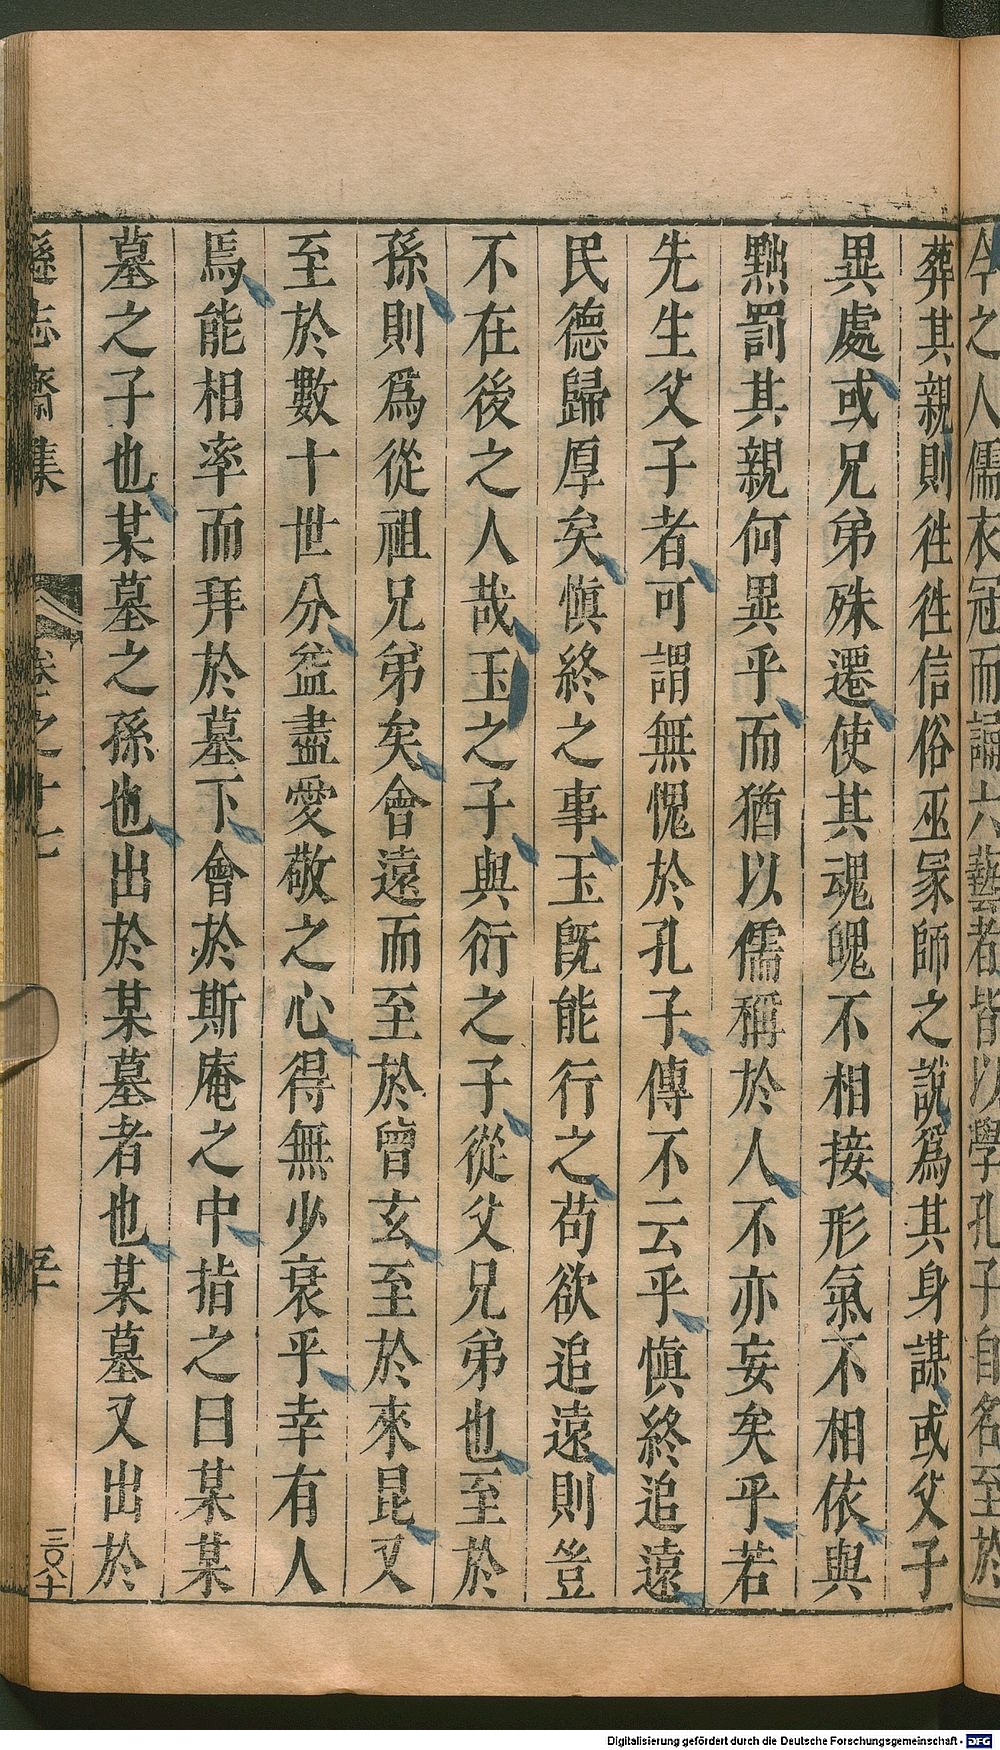 今之人儒衣冠而誦六藝者皆以學孔子自名至於
葬其親則徃徃信俗巫冡師之說爲其身謀或父子
異處或兄弟殊遷使其魂魄不相接形氣不相依與
黥罰其親何異乎而猶以儒稱於人不亦妄矣乎若
先生父子者可謂無愧於孔子傳不云乎愼終追遠
民德歸厚矣愼終之事玉旣能行之苟欲追遠則豈
不在後之人哉玉之子與衍之子從父兄弟也至於
孫則爲從祖兄弟矣會遠而至於曾玄至於來昆又
至於數十世分益盡愛敬之心得無少衰乎幸有人
焉能相率而拜於墓下會於斯庵之中指之曰某某
墓之子也某墓之孫也出於某墓者也某墓又出於
遜志齋集 卷之十七 三〇八十
Digitalisierung gefördert durch die Deutsche Forschungsgemeinschaft - DFG